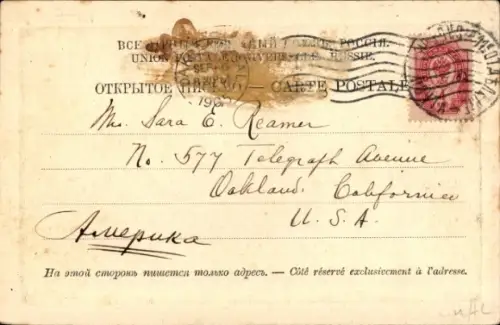 ВСЕМІРНЫЙ ПОЧТОВЫЙ СОЮЗЪ. РОССІЯ.
UNION POSTALE UNIVERSELLE. RUSSIE.
ОТКРЫТОЕ ПИСЬМО. — CARTE POSTALE
Mrs. Sara E. Reamer
No. 577 Telegraph Avenue
Oakland California
U. S. A.
Америка
На этой сторонѣ пишется только адресъ. — Côté réservé exclusivement à l'adresse.